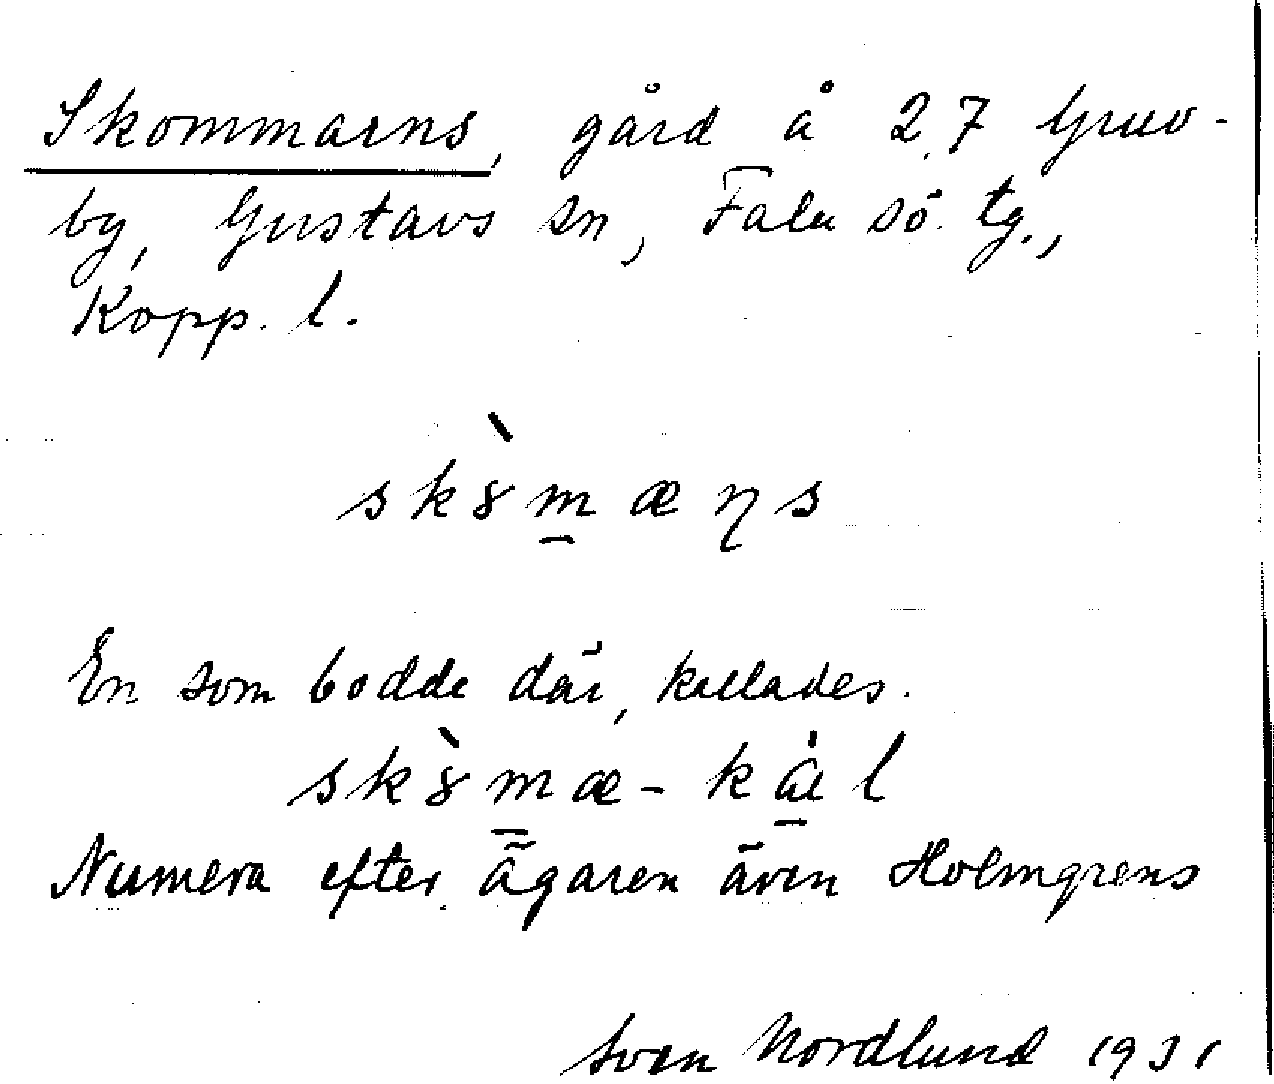 Skommarns, gård å 2,7 Gruv-
by, Gustavs sn, Falu sö. tg.,
Kopp. l.
skȣ̀m̲æɳs
En som bodde där, kallades.
skȣ̀m̲æ-ka̲l
Numera efter ägaren även Holmgrens
Sven Nordlund 1931